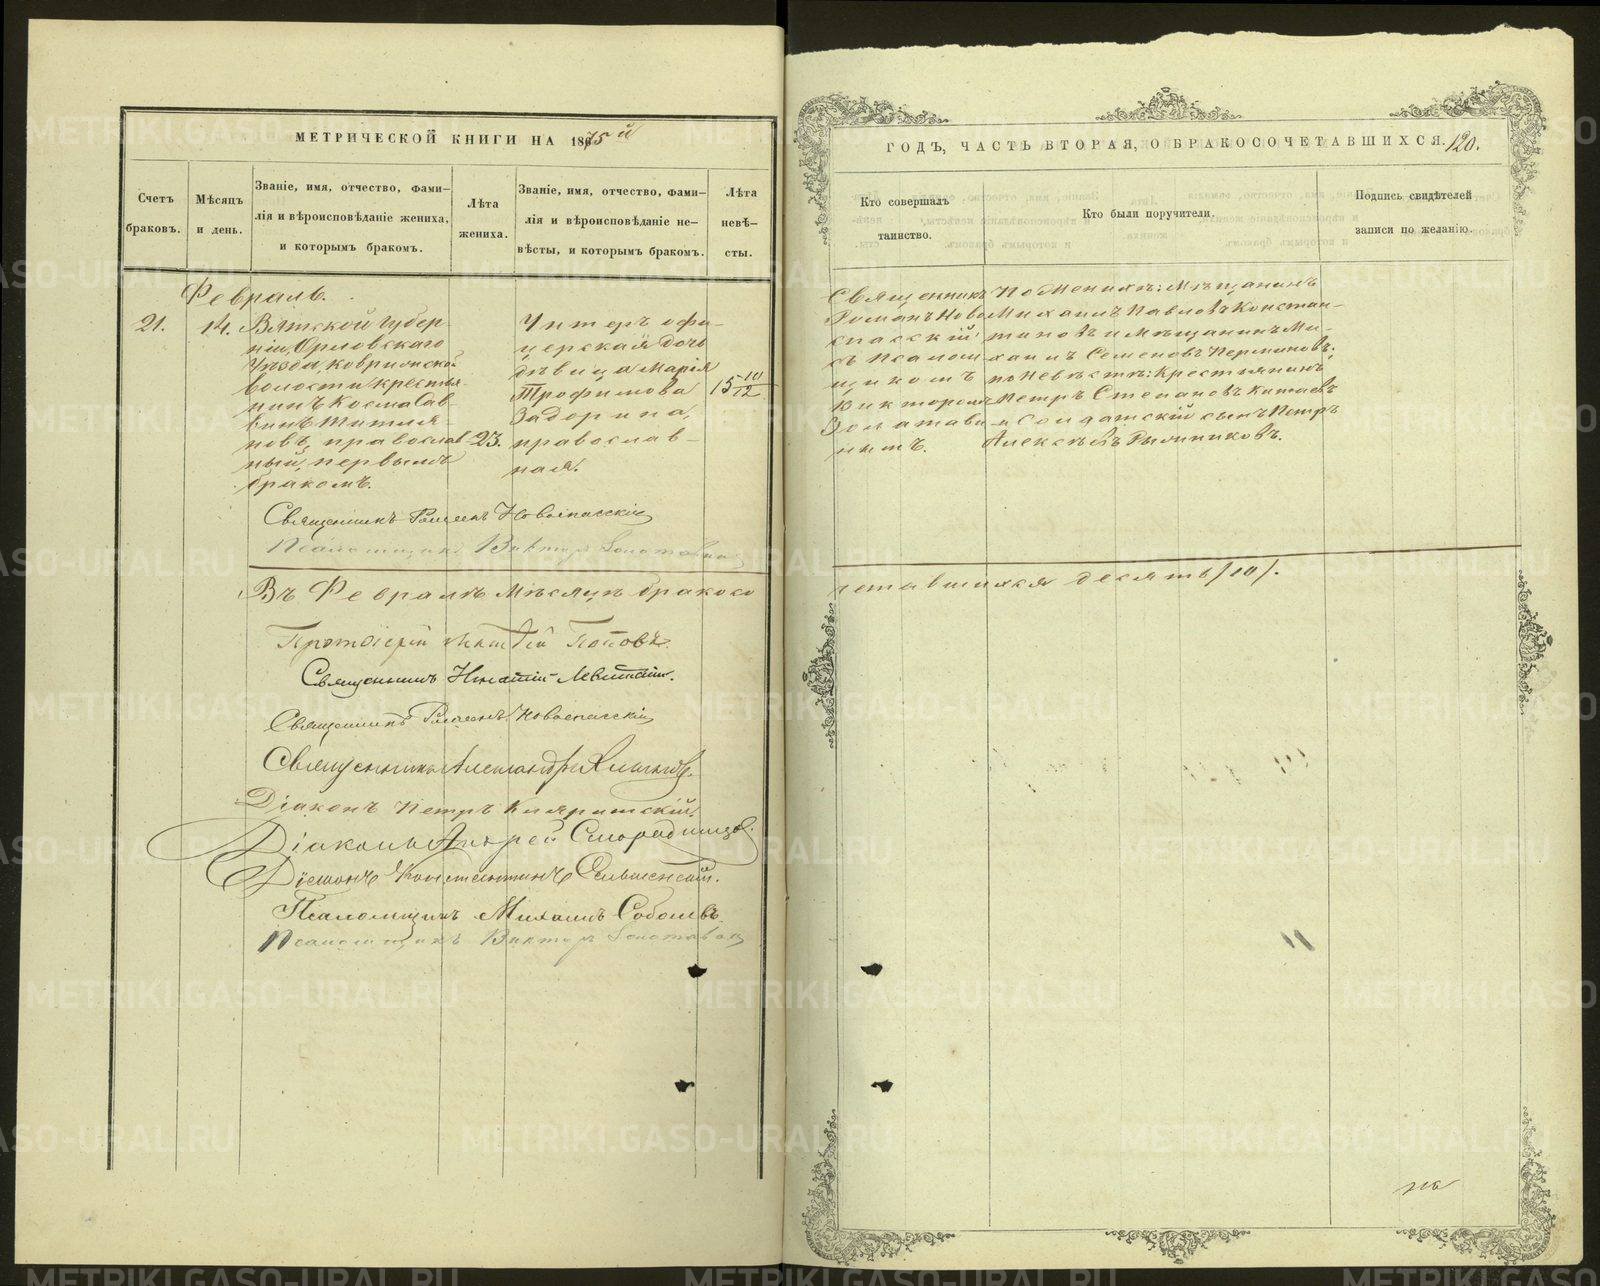 МЕТРИЧЕСКОЙ КНИГИ НА 1875й
Счетъ браковъ.
Мѣсяцъ и день.
Званіе, имя, отчество, фами-
лія и вѣроисповѣданіе жениха,
и которымъ бракомъ.
Лѣта жениха.
Званіе, имя, отчество, фами-
лія и вѣроисповѣданіе не-
вѣсты, и которымъ бракомъ.
Лѣта невѣ-
сты.
Февраль.
21.
14.
Вятской губер-
ніи, Орловскаго
уѣзда,
волости, крестья-
нинъ Косма Сав-
винъ
православ-
ный, первымъ
бракомъ.
23.
Унтеръ офи-
церская дочь
дѣвица Марія
Трофимова
Задорина,
православ-
ная.
15 10/12
Священникъ Романъ Новоспасскій
Псаломщикъ Викторъ Золотавинъ
Въ Февралѣ Мѣсяцѣ бракосо
Протоіерей Поповъ.
Священникъ Игнатій Левитскій.
Священникъ Романъ Новоспасскій
Священникъ Александръ
Діаконъ Петръ
Діаконъ Андрей Смородинцовъ.
Діаконъ Константинъ
Псаломщикъ Михаилъ Соболевъ.
Псаломщикъ Викторъ Золотавинъ
ГОДЪ, ЧАСТЬ ВТОРАЯ, О БРАКОСОЧЕТАВШИХСЯ. 120.
Кто совершалъ
таинство.
Кто были поручители.
Подпись свидѣтелей
записи по желанію.
Священникъ
Романъ Ново-
спасскій
съ псалом-
щикомъ
Викторомъ
Золотави-
нымъ.
По Женихѣ: Мѣщанинъ
Михаилъ Павловъ Констан-
тиновъ и Мѣщанинъ Ми-
хаилъ Семеновъ Перминовъ;
по Невѣстѣ: Крестьянинъ
Петръ Степановъ Китаевъ
и Солдатскій сынъ Петръ
Алексѣевъ
четавшихся десять /10/.
METRIKI.GASO-URAL.RU